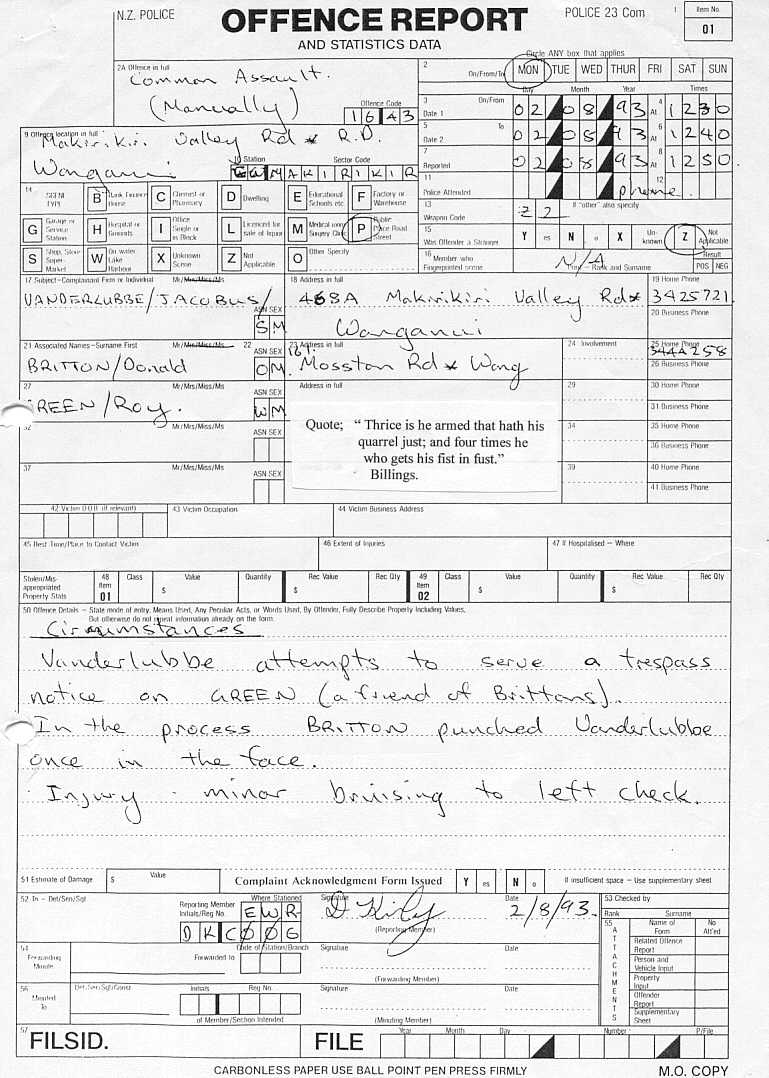 N.Z. POLICE
OFFENCE REPORT
POLICE 23 Com
1
Item No.
01
AND STATISTICS DATA
Circle ANY box that applies
2A Offence in full
Common Assault.
(Manually)
Offence Code
1 6 4 3
2
On/From/To
MON TUE WED THUR FRI SAT SUN
Day Month Year Times
3 On/From
Date 1
02 08 93 At 4 1230
5 To
Date 2
02 08 93 At 6 1240
7
Reported
02 08 93 At 8 1250.
11
Police Attended
12
phone.
9 Offence location in full
Makirikiri Valley Rd * R.D.
Wanganui
10 Station
Sector Code
MAKIRIKIR
13
Weapon Code
2 2
If "other" also specify
14
SCENE TYPE
B Bank Finance House
C Chemist or Pharmacy
D Dwelling
E Educational Schools etc.
F Factory or Warehouse
G Garage or Service Station
H Hospital or Grounds
I Office Single or in Block
L Licenced for sale of liquor
M Medical room Surgery Clinic
P Public Place Road Street
S Shop, Store Super-Market
W On water Lake Harbour
X Unknown Scene
Z Not Applicable
O Other Specify
15
Was Offender a Stranger
Y es N o X Un-known Z Not Applicable
16
Member who Fingerprinted scene
N/A
Rank and Surname
Result
POS NEG
17 Subject-Complainant Firm or Individual Mr/Mrs/Miss/Ms
VANDERLUBBE/JACOBUS/
ASN SEX
S M
18 Address in full
468A Makirikiri Valley Rd*
Wanganui
19 Home Phone
3425721.
20 Business Phone
21 Associated Names-Surname First Mr/Mrs/Miss/Ms
BRITTON/Donald
22 ASN SEX
O M
23 Address in full
161.
Mosston Rd * Wang
24 Involvement
25 Home Phone
344A258
26 Business Phone
27 Mr/Mrs/Miss/Ms
GREEN/Roy.
ASN SEX
W M
Address in full
29
30 Home Phone
31 Business Phone
32 Mr/Mrs/Miss/Ms
ASN SEX
34
35 Home Phone
36 Business Phone
37 Mr/Mrs/Miss/Ms
ASN SEX
39
40 Home Phone
41 Business Phone
Quote; " Thrice is he armed that hath his
quarrel just; and four times he
who gets his fist in fust."
Billings.
42 Victim D.O.B (if relevant)
43 Victim Occupation
44 Victim Business Address
45 Best Time/Place to Contact Victim
46 Extent of Injuries
47 If Hospitalised – Where
Stolen/Mis-appropriated Property Stats
48 Item 01 Class Value $ Quantity Rec Value $ Rec Qty
49 Item 02 Class Value $ Quantity Rec Value $ Rec Qty
50 Offence Details – State mode of entry, Means Used, Any Peculiar Acts, or Words Used, By Offender, Fully Describe Property Including Values,
But otherwise do not repeat information already on the form.
Circumstances
Vanderlubbe attempts to serve a trespass
notice on GREEN (a friend of Brittons).
In the process BRITTON punched Vanderlubbe
once in the face.
Injury - minor bruising to left check.
51 Estimate of Damage
$ Value
Complaint Acknowledgment Form Issued
Y es N o
If insufficient space – Use supplementary sheet
52 In – Det/Sen/Sgt
Reporting Member
Initials/Reg No.
Where Stationed
E W R
D K C006
Signature
D Kirly
(Reporting Member)
Date
2/8/93.
53 Checked by
Rank Surname
54
Forwarding Minute
Forwarded to
Code of Station/Branch
Signature
(Forwarding Member)
Date
55
ATTACHMENTS
Name of Form No Att'ed
Related Offence Report
Person and Vehicle Input
Property Input
Offender Report
Supplementary Sheet
56
Minuted To
Det/Sen/Sgt/Const
Initials Reg No.
of Member/Section Intended
Signature
(Minuting Member)
Date
57
FILSID.
FILE
Year Month Day Number P/File
CARBONLESS PAPER USE BALL POINT PEN PRESS FIRMLY
M.O. COPY